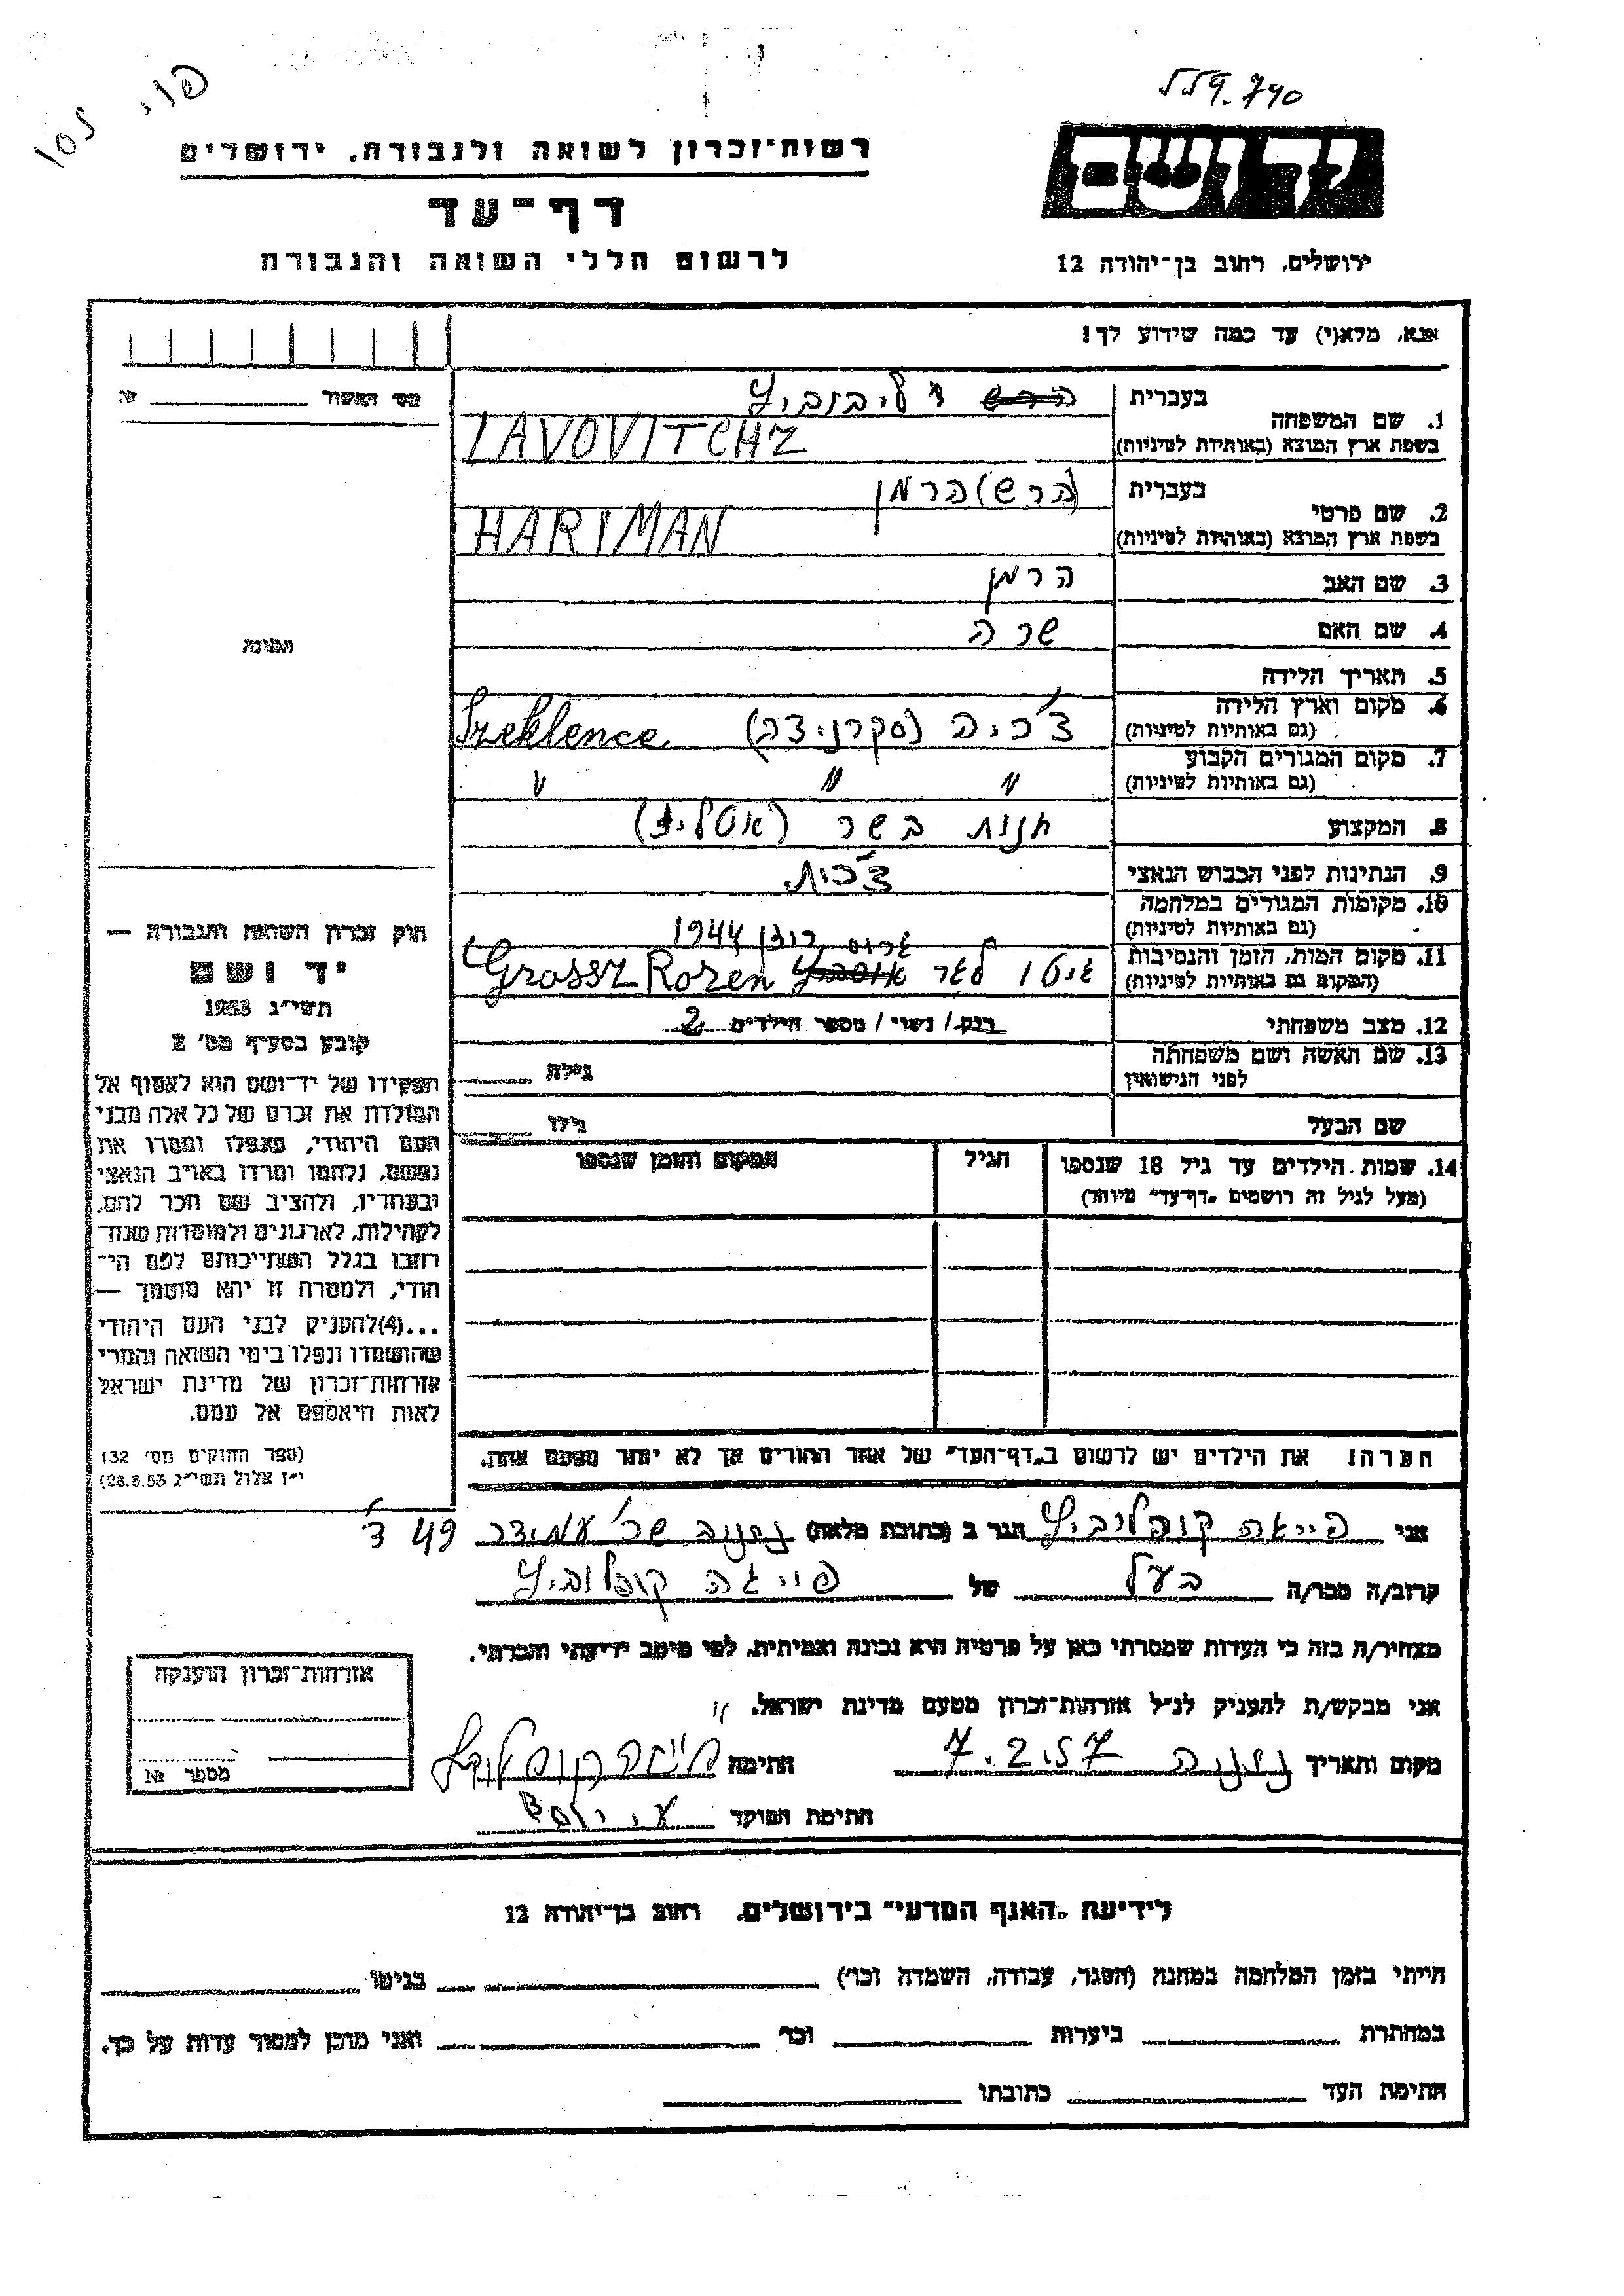 559.790
יד ושם
ירושלים, רחוב בן־יהודה 12
רשות־זכרון לשואה ולגבורה, ירושלים
דף־עד
לרשום חללי השואה והגבורה
אנא, מלא(י) עד כמה שידוע לך!
1. שם המשפחה
בעברית
ליבוביץ
בשפת ארץ המוצא (באותיות לטיניות)
LAVOVITCHZ
2. שם פרטי
בעברית
(הרש) הרמן
בשפת ארץ המוצא (באותיות לטיניות)
HARIMAN
3. שם האב הרמן
4. שם האם שרה
5. תאריך הלידה
6. מקום וארץ הלידה
(גם באותיות לטיניות)
צ'כיה (סקרניצה) Szeklence
7. מקום המגורים הקבוע
(גם באותיות לטיניות)
" " "
8. המקצוע חנות בשר (אטליז)
9. הנתינות לפני הכבוש הנאצי צ'כית
10. מקומות המגורים במלחמה
(גם באותיות לטיניות)
גרוס רוזן 1944
11. מקום המות, הזמן והנסיבות
(המקום גם באותיות לטיניות)
גיטו לאר Grossz Rozen
12. מצב משפחתי רוק / נשוי / מספר הילדים 2
13. שם האשה ושם משפחתה
לפני הנישואין
גילה
שם הבעל גילו
14. שמות הילדים עד גיל 18 שנספו
(מעל לגיל זה רושמים "דף־עד" מיוחד)
הגיל
המקום והזמן שנספו
הערה! את הילדים יש לרשום ב"דף־העד" של אחד ההורים אך לא יותר מפעם אחת.
מס' האשור №
תמונה
חוק זכרון השואה והגבורה —
יד ושם
תשי"ג 1953
קובע בסעיף מס' 2
תפקידו של יד־ושם הוא לאסוף אל
המולדת את זכרם של כל אלה מבני
העם היהודי, שנפלו ומסרו את
נפשם, נלחמו ומרדו באויב הנאצי
ובעוזריו, ולהציב שם וזכר להם,
לקהילות, לארגונים ולמוסדות שנח־
רבו בגלל השתייכותם לעם הי־
הודי, ולמטרה זו יהא מוסמך —
...(4)להעניק לבני העם היהודי
שהושמדו ונפלו בימי השואה והמרי
אזרחות־זכרון של מדינת ישראל
לאות היאספם אל עמם.
(ספר החוקים מס' 132
י"ז אלול תשי"ג 28.8.53)
אני פייגה קופלוביץ הגר ב (כתובת מלאה) נתניה שכ' עמידר 49 ד'
קרוב/ה מכר/ה בעל של פייגה קופלוביץ
מצהיר/ה בזה כי העדות שמסרתי כאן על פרטיה היא נכונה ואמיתית, לפי מיטב ידיעתי והכרתי.
אני מבקש/ת להעניק לנ"ל אזרחות־זכרון מטעם מדינת ישראל.
מקום ותאריך נתניה 7.2.57 חתימה פייגה קופלוביץ
חתימת הפוקד
אזרחות־זכרון הוענקה
מספר №
לידיעת "האגף המדעי" בירושלים, רחוב בן־יהודה 12
הייתי בזמן המלחמה במחנה (הסגר, עבודה, השמדה וכו') בגיטו
במחתרת ביערות וכו' ואני מוכן למסור עדות על כך.
חתימת העד כתובתו